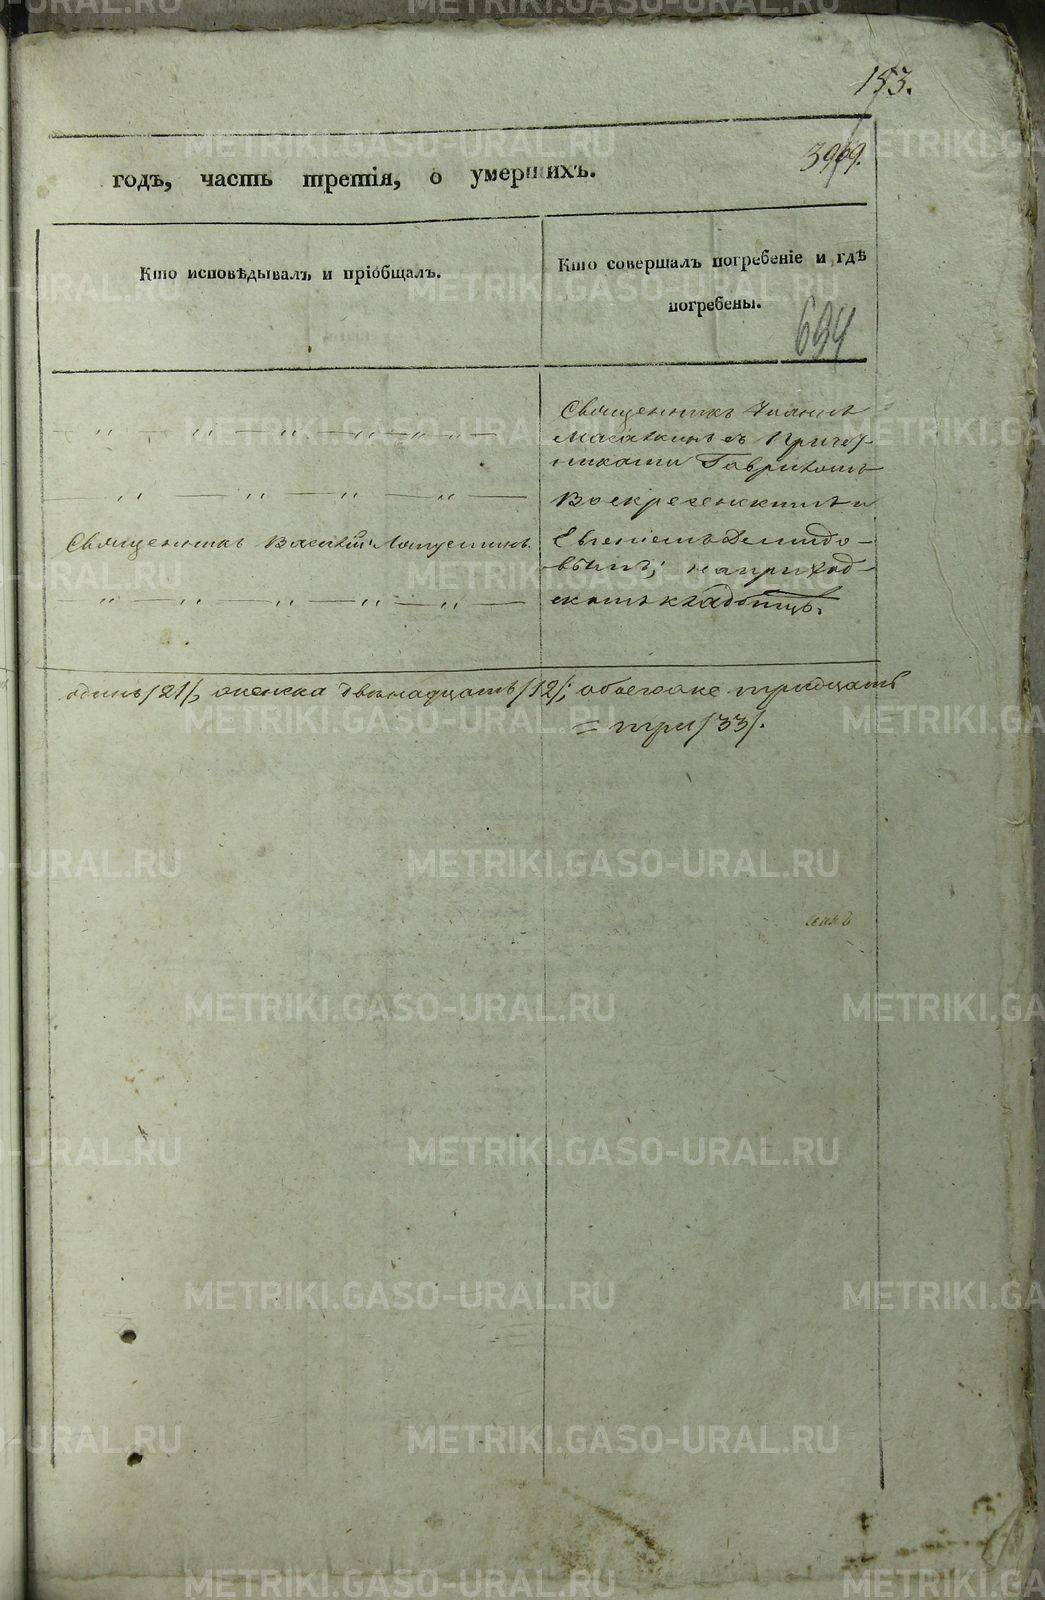 153.
годъ, часть третія, о умершихъ.
Кто исповѣдывалъ и пріобщалъ.
Кто совершалъ погребеніе и гдѣ
погребены.
694
Священникъ Іоаннъ
съ Причет-
никами Гавріиломъ
Воскресенскимъ и
Священникъ Василій Лапустинъ.
Евгеніемъ Демидо-
вымъ; на приход-
скомъ кладбищѣ.
одинъ /21/, а женска двенадцать /12/; обоего же тридцать
= три /33/.
METRIKI.GASO-URAL.RU